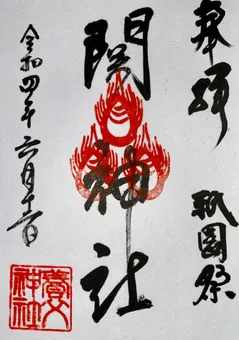 奉拝
祇園祭
関神社
令和四年六月
賣太
神社